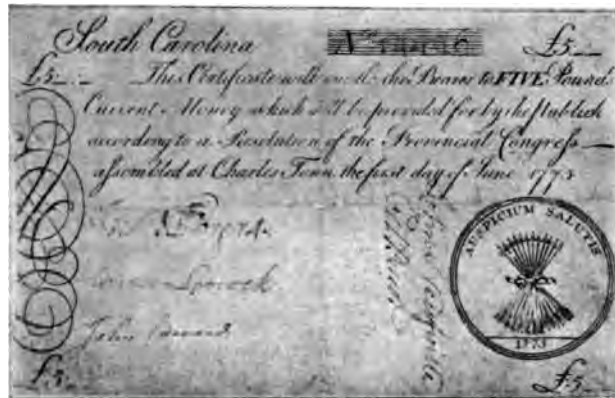 South Carolina £5
£5 This Certificate will entitle the Bearer to FIVE Pounds
Current Money which will be provided for by the Publick
according to a Resolution of the Provincial Congress
assembled at Charles Town the first day of June 1775
John
AUSPICIUM SALUTIS
1775
£5 £5